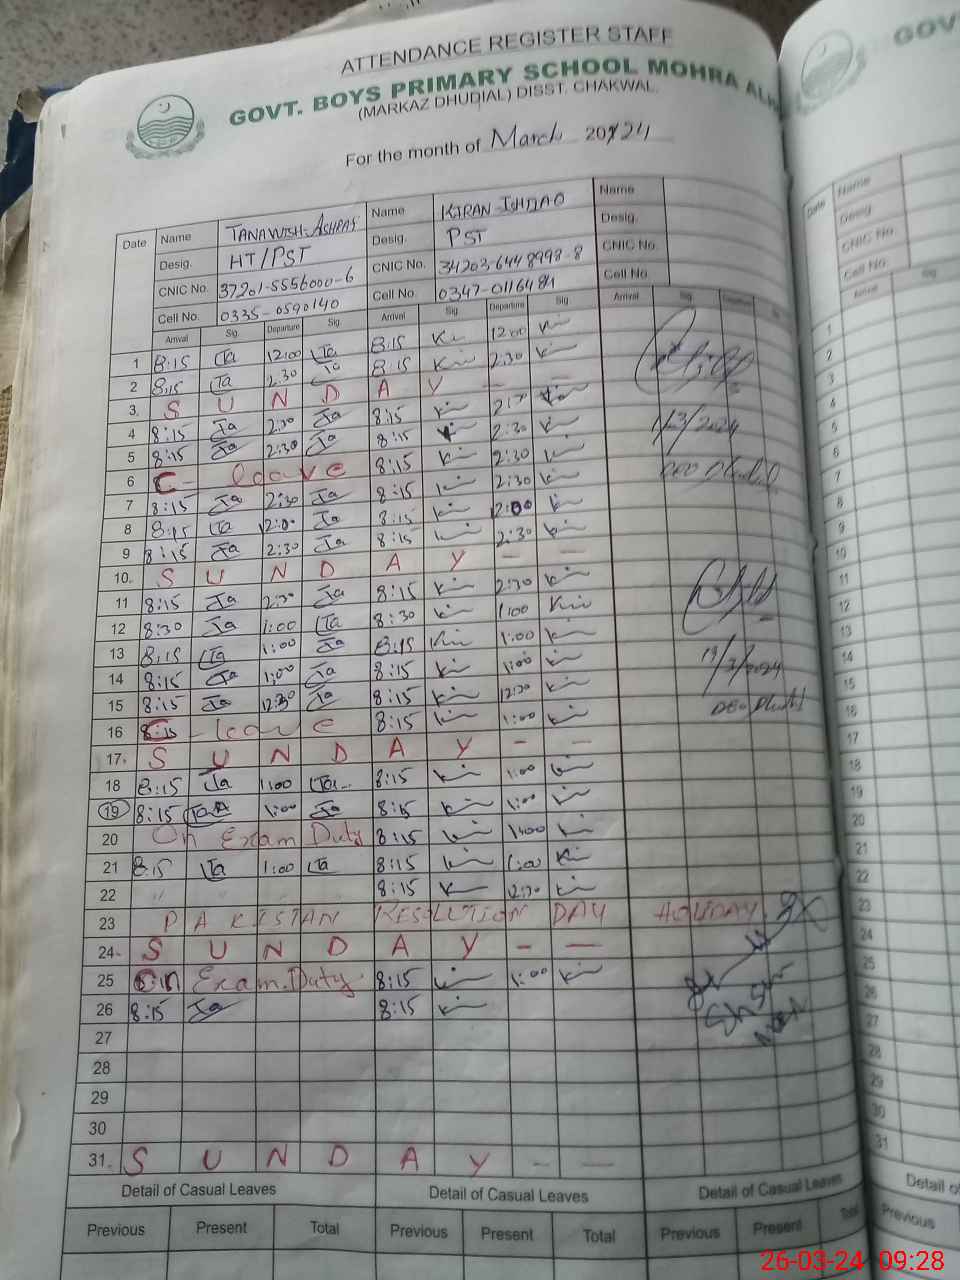 ATTENDANCE REGISTER STAFF
GOVT. BOYS PRIMARY SCHOOL MOHRA
(MARKAZ DHUDIAL) DISST. CHAKWAL.
For the month of March 2024
Date Name TANAWISH-ASHRAF Name KIRAN ISHTIAQ Name
Desig. HT/PST Desig. PST Desig.
CNIC No. 37201-5556000-6 CNIC No. 34203-6448998-8 CNIC No.
Cell No. 0335-0590140 Cell No. 0347-0116481 Cell No.
Arrival Sig. Departure Sig. Arrival Sig. Departure Sig. Arrival Sig.
1 8:15 Ta 12:00 Ta 8:15 12:00
2 8:15 Ta 2:30 Ta 8:15 2:30
3. S U N D A Y - -
4 8:15 Ta 2:30 Ta 8:15
5 8:15 Ta 2:30 Ta 8:15 2:30 1/3/2024
6 C- leave 8:15 2:30
7 8:15 Ta 2:30 Ta 8:15 2:30
8 8:15 Ta 12:00 Ta 8:15 12:00
9 8:15 Ta 2:30 Ta 8:15 2:30
10. S U N D A Y - -
11 8:15 Ta 2:30 Ta 8:15 2:30
12 8:30 Ta 1:00 Ta 8:30 1:00
13 8:15 Ta 1:00 Ta 8:15 1:00
14 8:15 Ta 1:00 Ta 8:15 1:00
15 8:15 Ta 12:30 Ta 8:15 12:30
16 C- leave 8:15 1:00
17. S U N D A Y - -
18 8:15 Ta 1:00 Ta 8:15 1:00
19 8:15 Ta 1:00 Ta 8:15 1:00
20 On Exam Duty 8:15 1:00
21 8:15 Ta 1:00 Ta 8:15 1:00
22 " " " " 8:15 12:30
23 PAKISTAN RESOLUTION DAY HOLIDAY
24- S U N D A Y - -
25 On Exam Duty 8:15 1:00
26 8:15 Ta 8:15
27
28
29
30
31. S U N D A Y - -
Detail of Casual Leaves Detail of Casual Leaves Detail of Casual Leaves
Previous Present Total Previous Present Total Previous Present Total
GOV
Date Name
Desig.
CNIC No.
Cell No.
Arrival Sig
1
2
3
4
5
6
7
8
9
10
11
12
13
14
15
16
17
18
19
20
21
22
23
24
25
26
27
28
29
30
31
Detail of
Previous
26-03-24 09:28